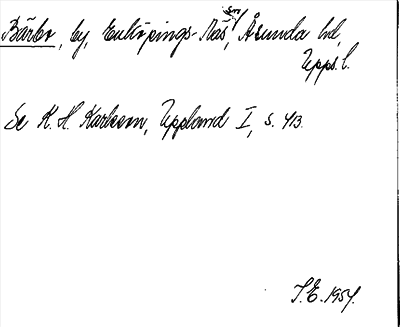 Bärbo, by, Enköpings-Näs sn, Åsunda hd,
Upps. l.
Se K. H. Karlsson, Uppland I, s. 413.
I.E. 1954.